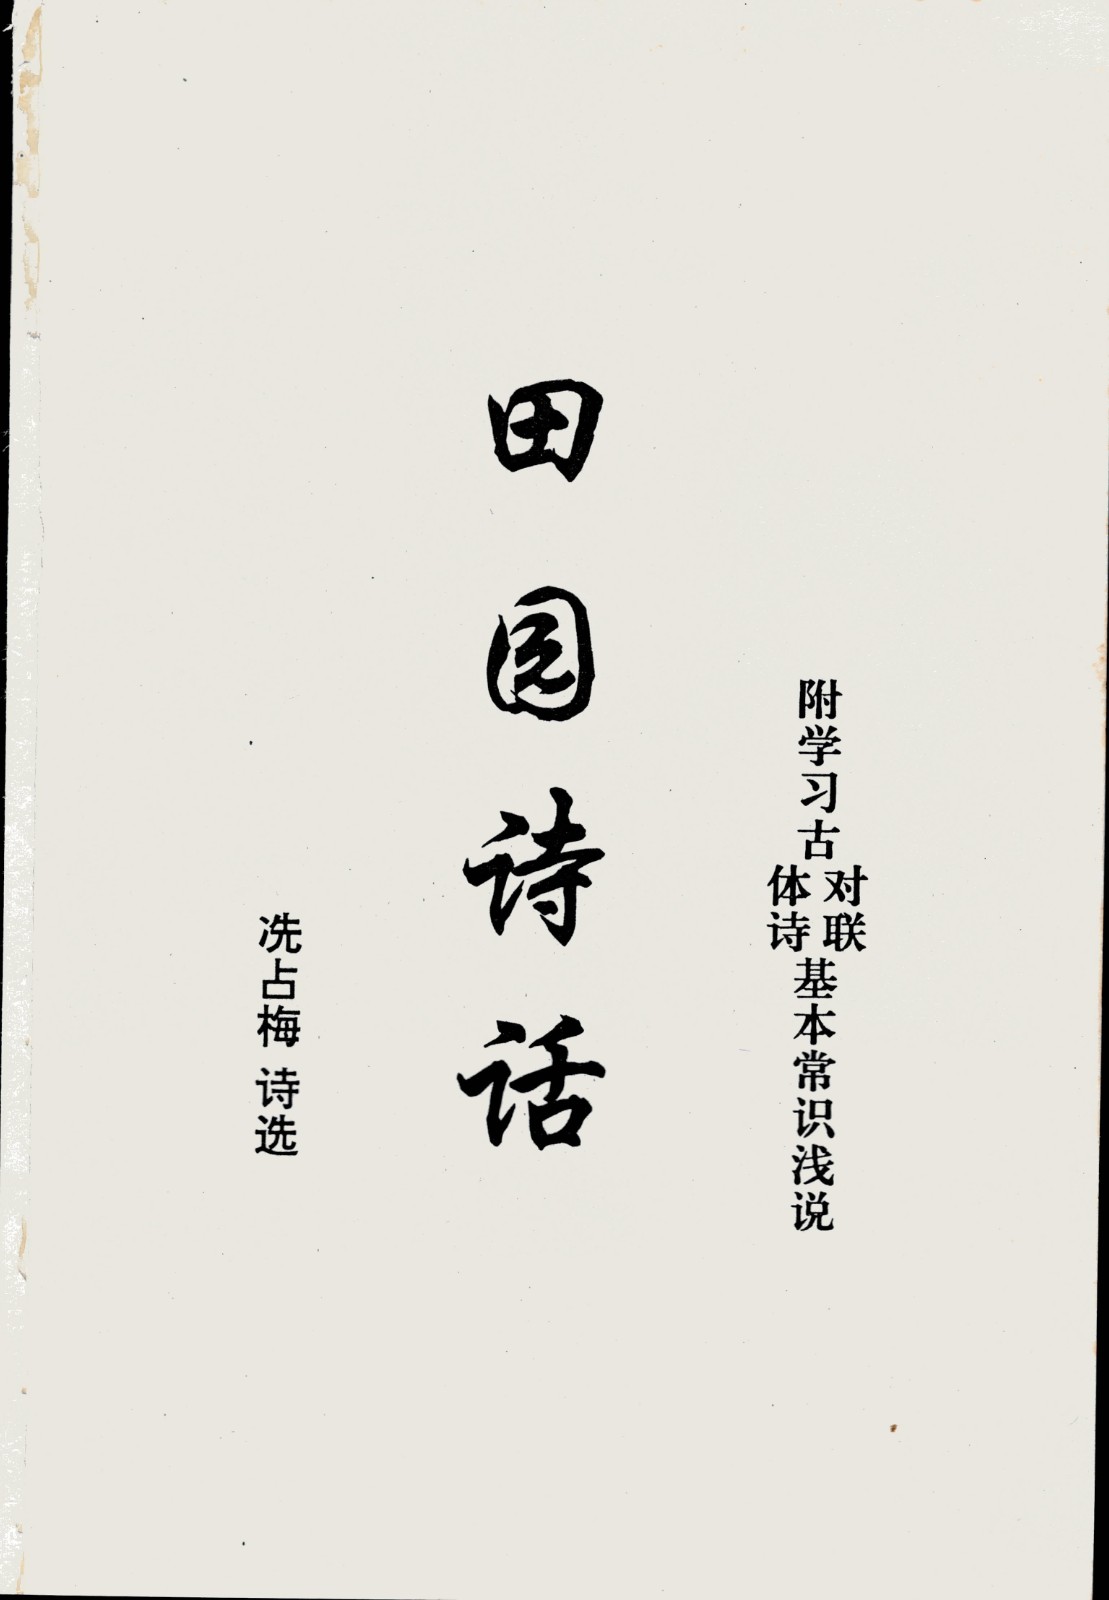 附学习古
对联
体诗
基本常识浅说
田园诗话
冼占梅 诗选